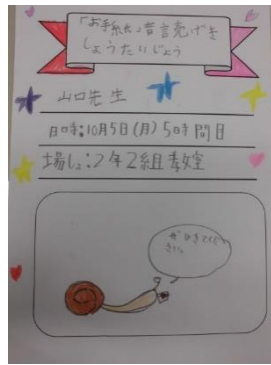 「お手紙」音読げき
しょうたいじょう
山口先生
日時:10月5日(月)5時間目
場しょ:2年2組教室
ぜひきてくだ
さい。